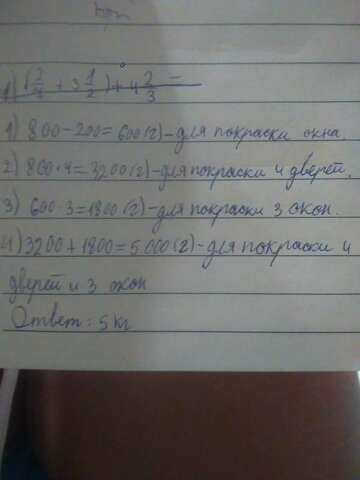 1) 800-200=600(г)-для покраски окна
2) 800·4=3200(г)-для покраски 4 дверей.
3) 600·3=1800(г)-для покраски 3 окон.
4) 3200+1800=5000(г)-для покраски 4
дверей и 3 окон
Ответ: 5 кг